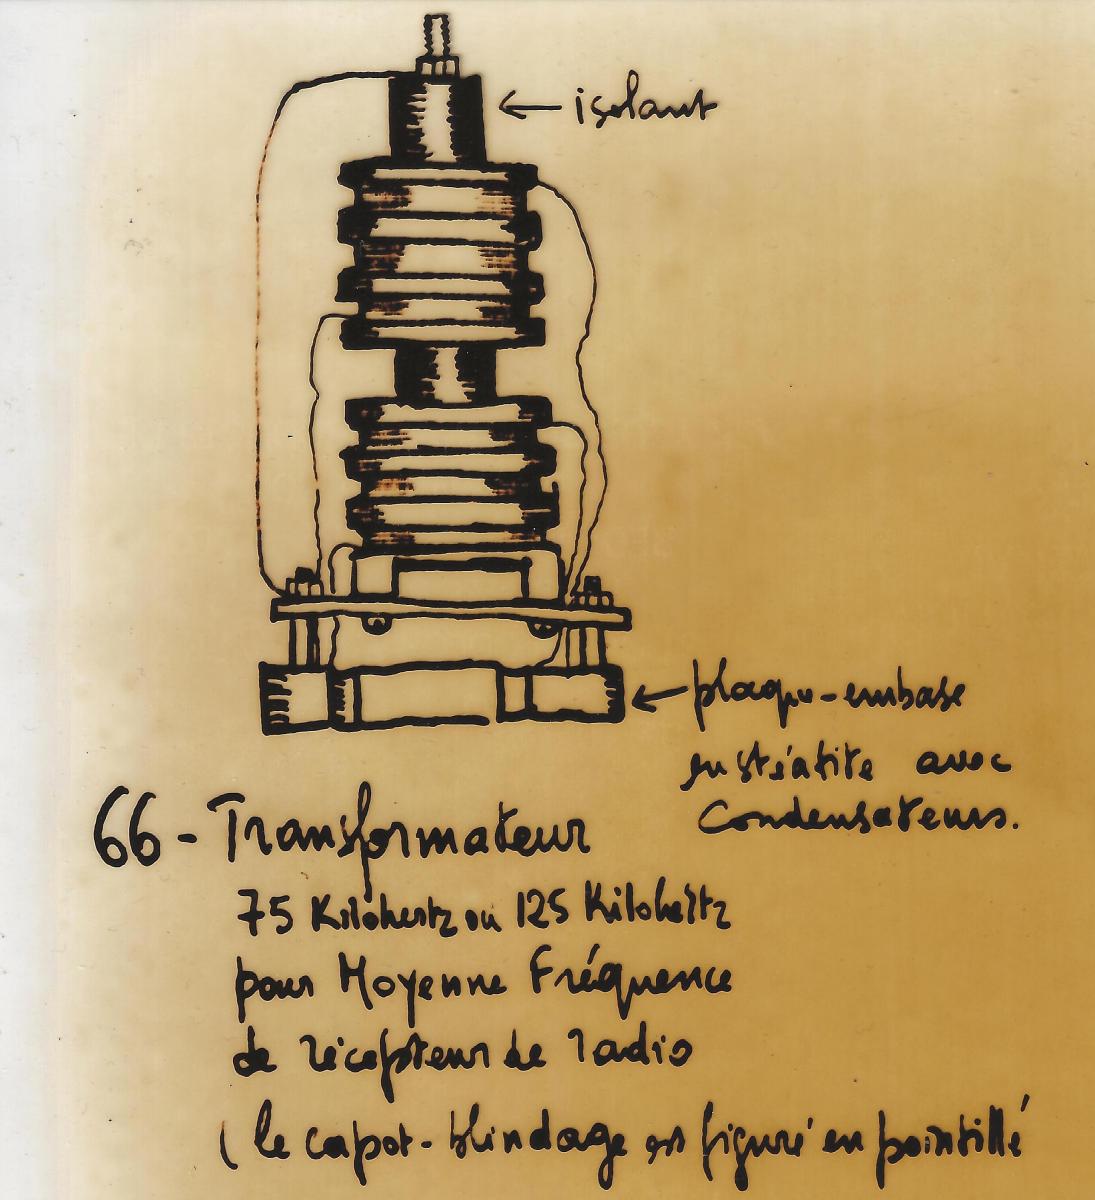 ← isolant
← plaque-embase
en stéatite avec
Condensateurs.
66 - Transformateur
75 Kilohertz ou 125 Kilohertz
pour Moyenne Fréquence
de récepteur de radio
( le capot-blindage est figuré en pointillé